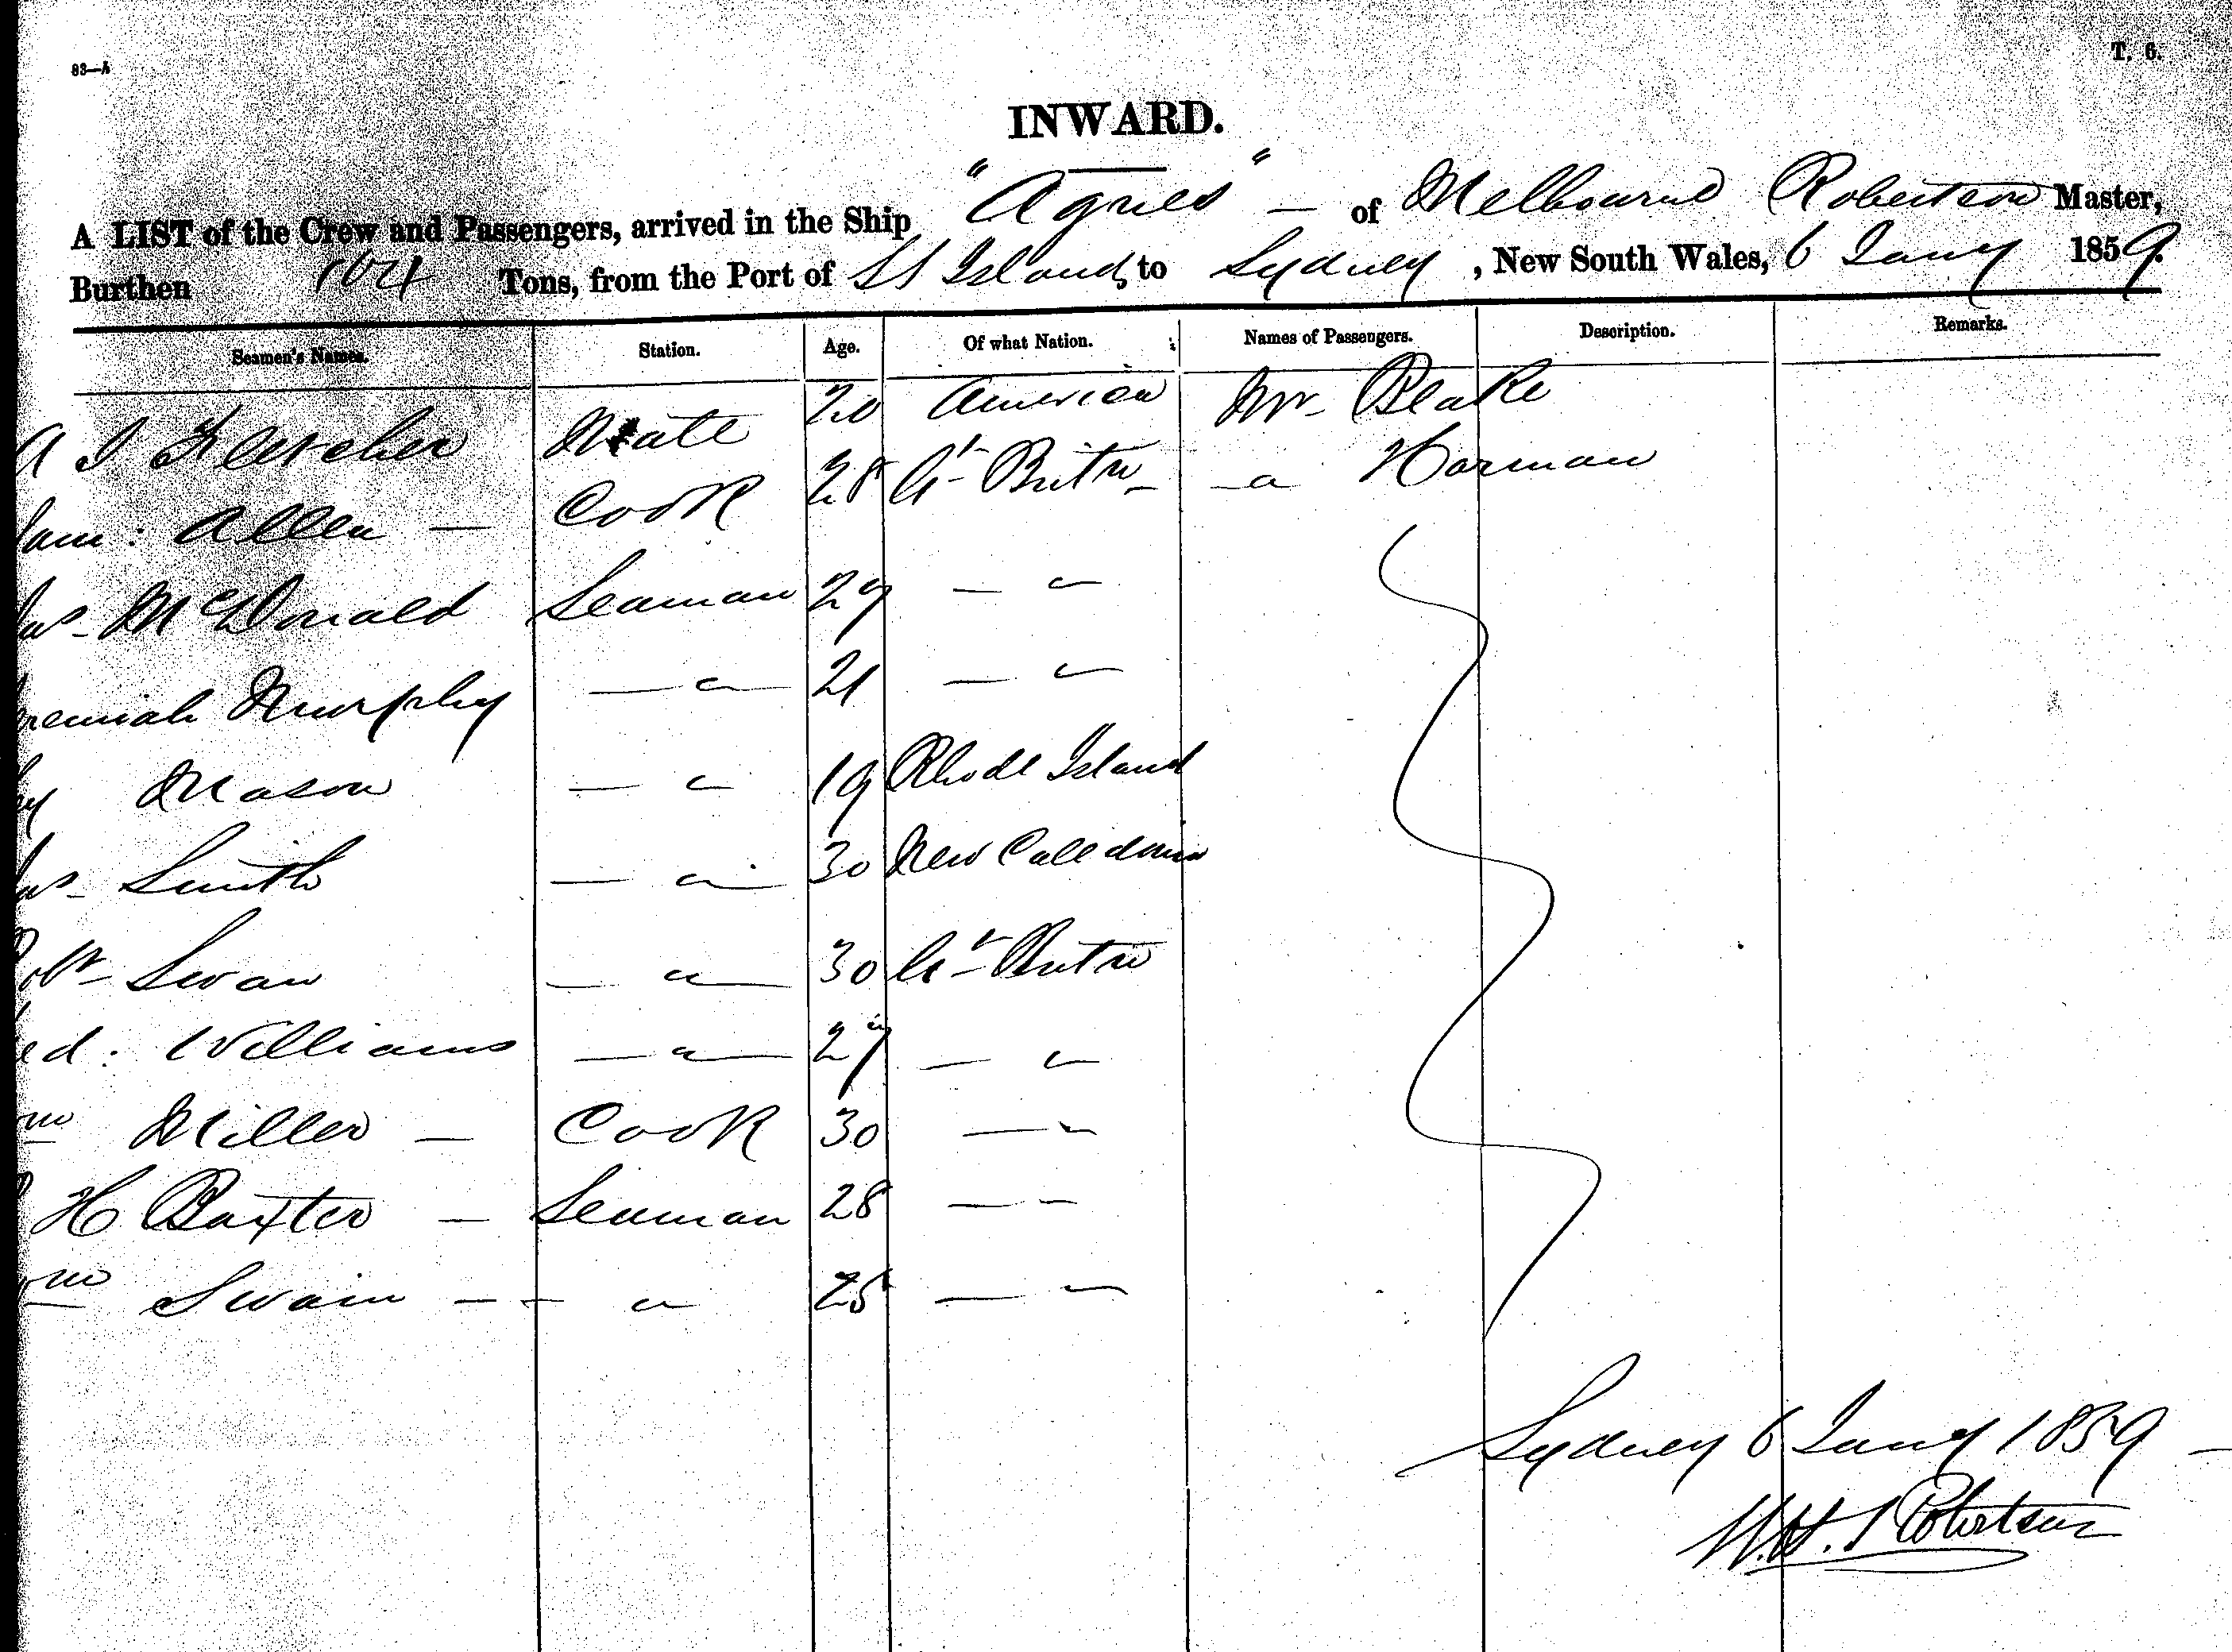 83—A
T. 6.
INWARD.
A LIST of the Crew and Passengers, arrived in the Ship "Agnes" — of Melbourne Robertson Master,
Burthen 104 Tons, from the Port of SS Islands to Sydney, New South Wales, 6 Jany 1859.
Seamen's Names. Station. Age. Of what Nation. Names of Passengers. Description. Remarks.
A J Fletcher Mate 20 America Mr. Blake
Allen — Cook 28 Gt Britn — " Harman
McDonald Seaman 29 — "
Murphy — " — 21 — "
Mason — " 19 Rhode Island
Smith — " — 30 New Caledonia
Swan — " — 30 Gt Britn
Williams — " — 27 — "
Miller — Cook 30 — "
H Baxter — Seaman 28 — "
Swain — — " 25 — "
Sydney 6 Jany 1859 —
W.H. Robertson